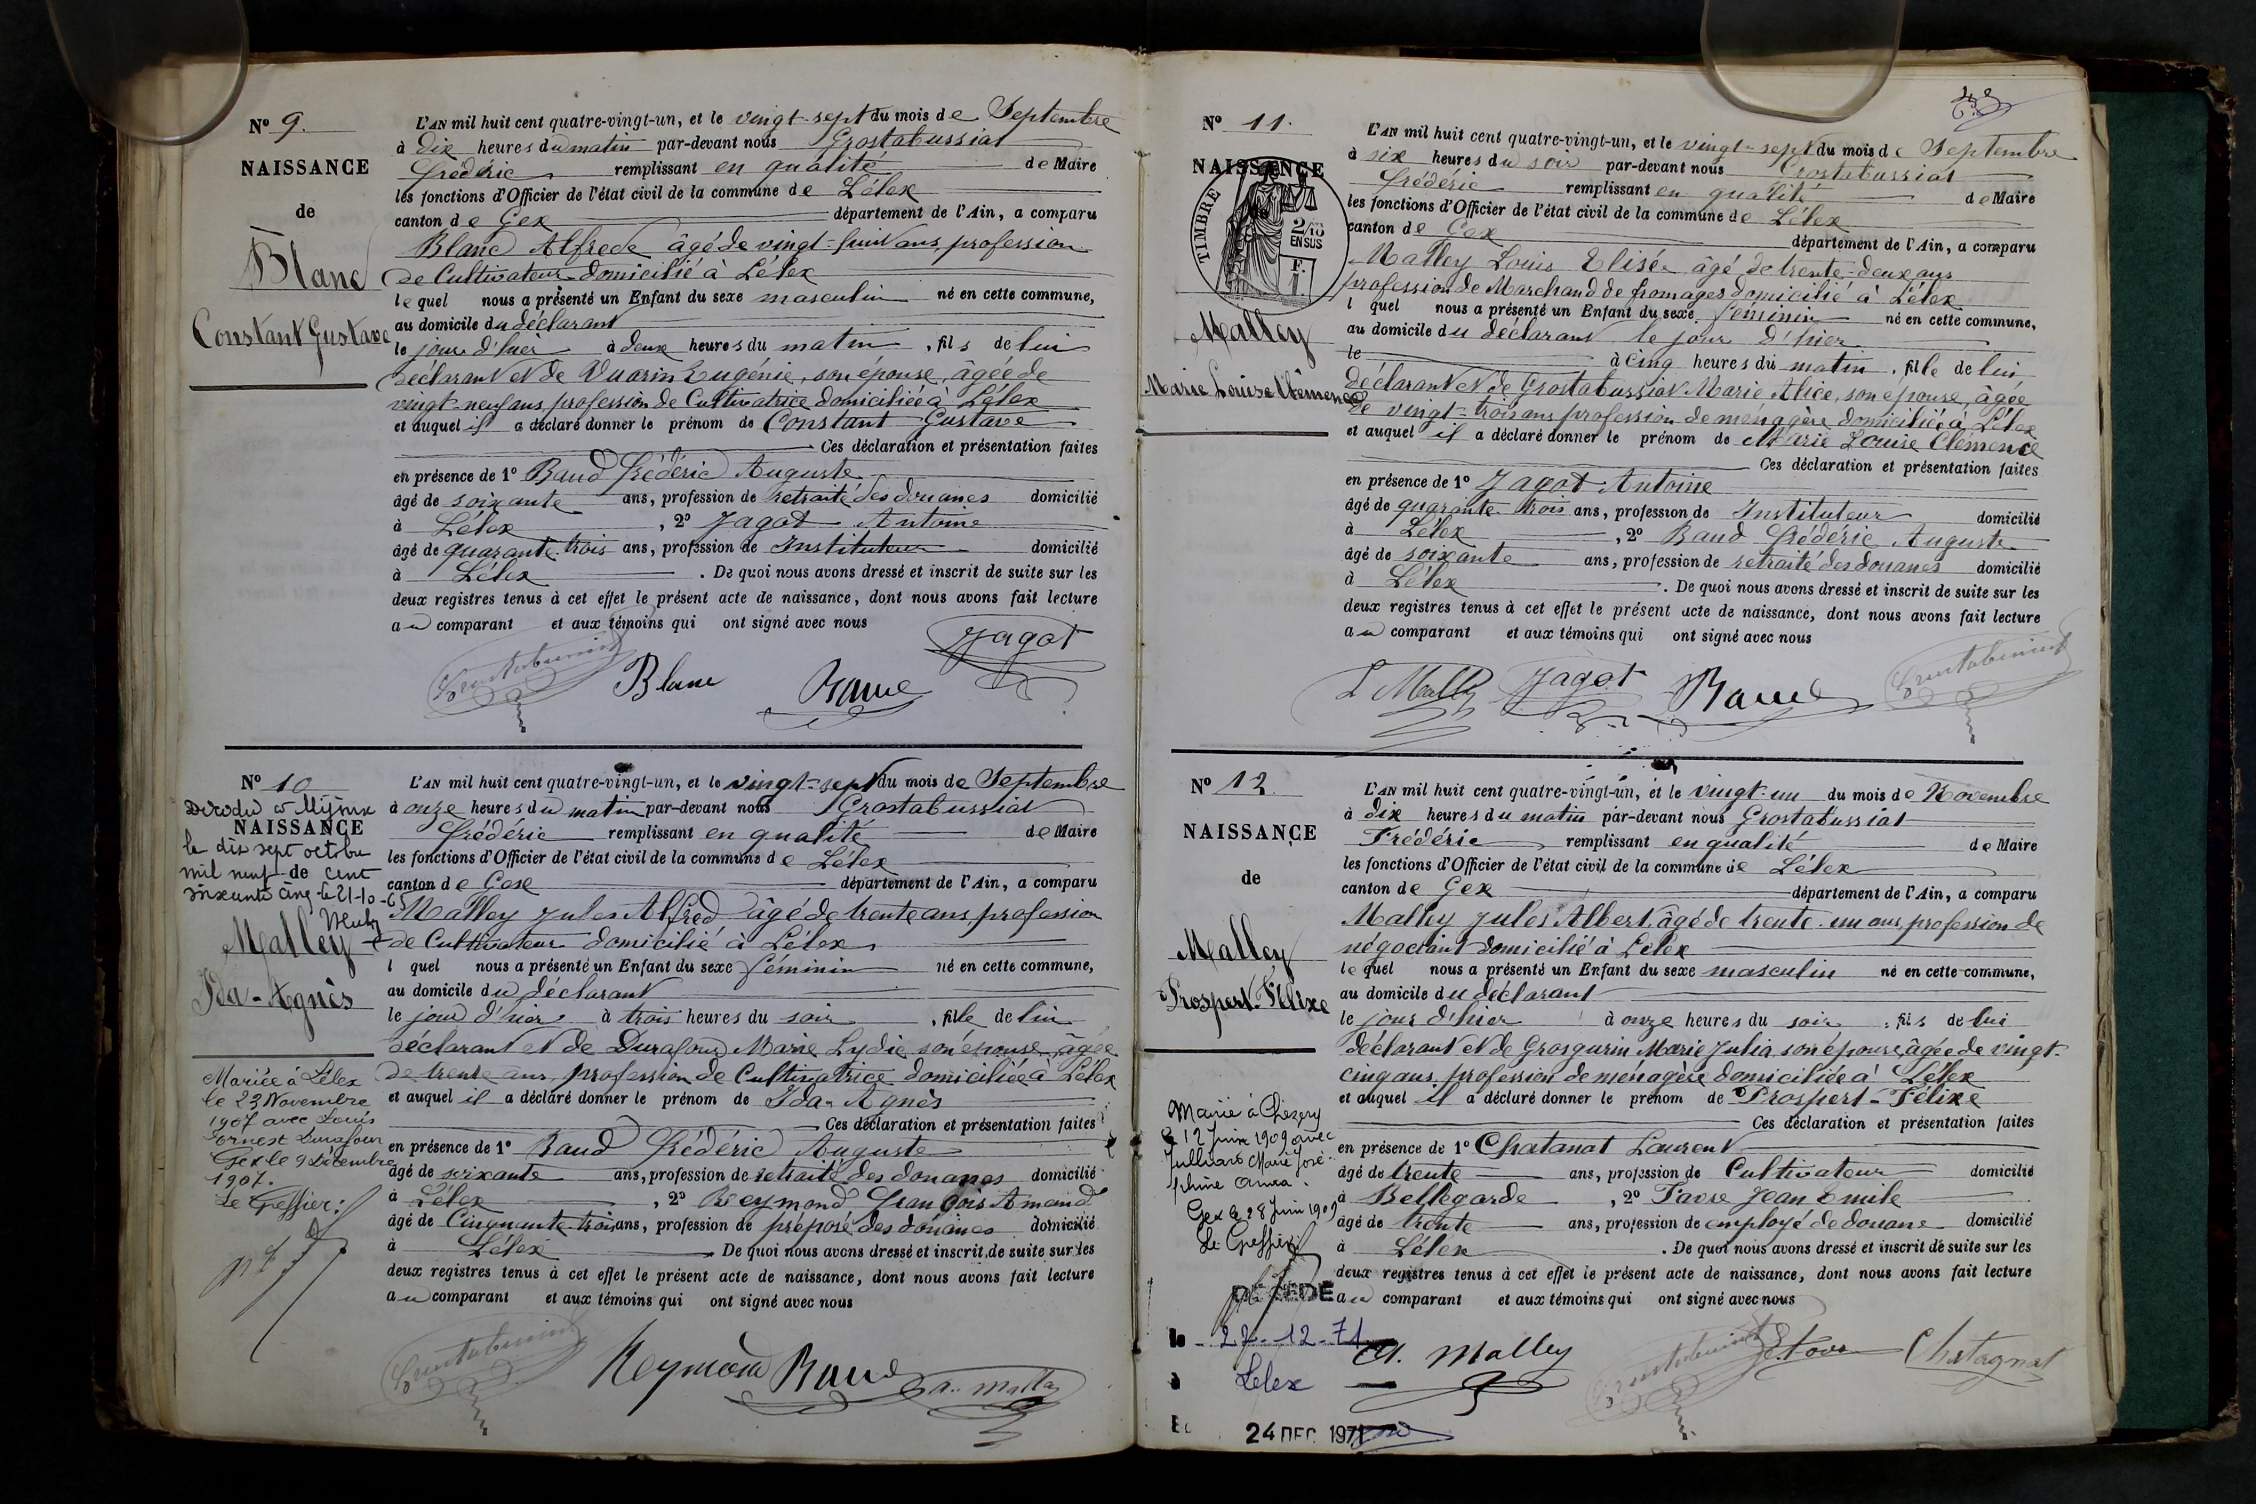 Nº 9.
NAISSANCE
de
Blanc
Constant Gustave
L'AN mil huit cent quatre-vingt-un, et le vingt-sept du mois de Septembre
à dix heures du matin par-devant nous Grostabussiat
Frédéric remplissant en qualité de Maire
les fonctions d'Officier de l'état civil de la commune de Lélex
canton de Gex département de l'Ain, a comparu
Blanc Alfrede âgé de vingt-huit ans, profession
de Cultivateur domicilié à Lélex
lequel nous a présenté un Enfant du sexe masculin né en cette commune,
au domicile du déclarant
le jour d'hier à deux heures du matin, fils de lui
déclarant et de Vuarin Eugénie, son épouse, âgée de
vingt-neuf ans, profession de Cultivatrice domiciliée à Lélex
et auquel il a déclaré donner le prénom de Constant Gustave
Ces déclaration et présentation faites
en présence de 1º Baud Frédéric Auguste
âgé de soixante ans, profession de retraité des douanes domicilié
à Lélex, 2º Jagot Antoine
âgé de quarante-trois ans, profession de Instituteur domicilié
à Lélex. De quoi nous avons dressé et inscrit de suite sur les
deux registres tenus à cet effet le présent acte de naissance, dont nous avons fait lecture
au comparant et aux témoins qui ont signé avec nous
Grostabussiat Blanc Baud Jagot
Nº 10
Décédée à Mijoux
NAISSANCE
le dix sept octobre
mil neuf de cent
soixante cinq le 21-10-65
Malley
Ida-Agnès
Mariée à Lélex
le 23 Novembre
1907 avec Louis
Ernest Durafour
Gex le 9 décembre
1907.
Le Greffier:
L'AN mil huit cent quatre-vingt-un, et le vingt-sept du mois de Septembre
à onze heures du matin par-devant nous Grostabussiat
Frédéric remplissant en qualité de Maire
les fonctions d'Officier de l'état civil de la commune de Lélex
canton de Gex département de l'Ain, a comparu
Malley Jules Alfred âgé de trente ans, profession
de Cultivateur domicilié à Lélex
l quel nous a présenté un Enfant du sexe féminin né en cette commune,
au domicile du déclarant
le jour d'hier à trois heures du soir, fille de lui
déclarant et de Durafour Marie Lydie son épouse, âgée
de trente ans, profession de Cultivatrice domiciliée à Lélex
et auquel il a déclaré donner le prénom de Ida-Agnès
Ces déclaration et présentation faites
en présence de 1º Baud Frédéric Auguste
âgé de soixante ans, profession de retraité des douanes domicilié
à Lélex, 2º Reymond François Amand
âgé de Cinquante-trois ans, profession de préposé des douanes domicilié
à Lélex De quoi nous avons dressé et inscrit de suite sur les
deux registres tenus à cet effet le présent acte de naissance, dont nous avons fait lecture
au comparant et aux témoins qui ont signé avec nous
Grostabussiat Reymond Baud a. Malley
Nº 11.
NAISSANCE
TIMBRE
2/10
EN SUS
F.
Malley
Marie Louise Clémence
L'AN mil huit cent quatre-vingt-un, et le vingt-sept du mois de Septembre
à six heures du soir par-devant nous Grostabussiat
Frédéric remplissant en qualité de Maire
les fonctions d'Officier de l'état civil de la commune de Lélex
canton de Gex département de l'Ain, a comparu
Malley Louis Elisée âgé de trente-deux ans
profession de Marchand de fromages domicilié à Lélex
l quel nous a présenté un Enfant du sexe féminin né en cette commune,
au domicile du déclarant le jour d'hier
le à cinq heures du matin, fille de lui
déclarant et de Grostabussiat Marie Alice, son épouse, âgée
de vingt-trois ans profession de ménagère domiciliée à Lélex
et auquel il a déclaré donner le prénom de Marie Louise Clémence
Ces déclaration et présentation faites
en présence de 1º Jagot Antoine
âgé de quarante trois ans, profession de Instituteur domicilié
à Lélex, 2º Baud Frédéric Auguste
âgé de soixante ans, profession de retraité des douanes domicilié
à Lélex. De quoi nous avons dressé et inscrit de suite sur les
deux registres tenus à cet effet le présent acte de naissance, dont nous avons fait lecture
au comparant et aux témoins qui ont signé avec nous
L Malley Jagot Baud Grostabussiat
Nº 12.
NAISSANCE
de
Malley
Prospert-Félixe
Marié à Chézery
le 12 Juin 1909 avec
Julliard Marie José-
phine
Gex le 28 Juin 1909
Le Greffier
DÉCÉDÉ
le 22-12-71
à Lelex
24 DEC 1971
L'AN mil huit cent quatre-vingt-un, et le vingt-un du mois de Novembre
à dix heures du matin par-devant nous Grostabussiat
Frédéric remplissant en qualité de Maire
les fonctions d'Officier de l'état civil de la commune de Lélex
canton de Gex département de l'Ain, a comparu
Malley Jules Albert, âgé de trente-un ans, profession de
négociant domicilié à Lélex
lequel nous a présenté un Enfant du sexe masculin né en cette commune,
au domicile du déclarant
le jour d'hier à onze heures du soir, fils de lui
déclarant et de Grosgurin Marie Julia, son épouse, âgée de vingt-
cinq ans, profession de ménagère domiciliée à Lélex
et auquel il a déclaré donner le prénom de Prospert-Félixe
Ces déclaration et présentation faites
en présence de 1º Chatanat Laurent
âgé de trente ans, profession de Cultivateur domicilié
à Bellegarde, 2º Favre Jean Emile
âgé de trente ans, profession de employé de douane domicilié
à Lélex. De quoi nous avons dressé et inscrit de suite sur les
deux registres tenus à cet effet le présent acte de naissance, dont nous avons fait lecture
au comparant et aux témoins qui ont signé avec nous
A. Malley Grostabussiat Favre Chatagnat